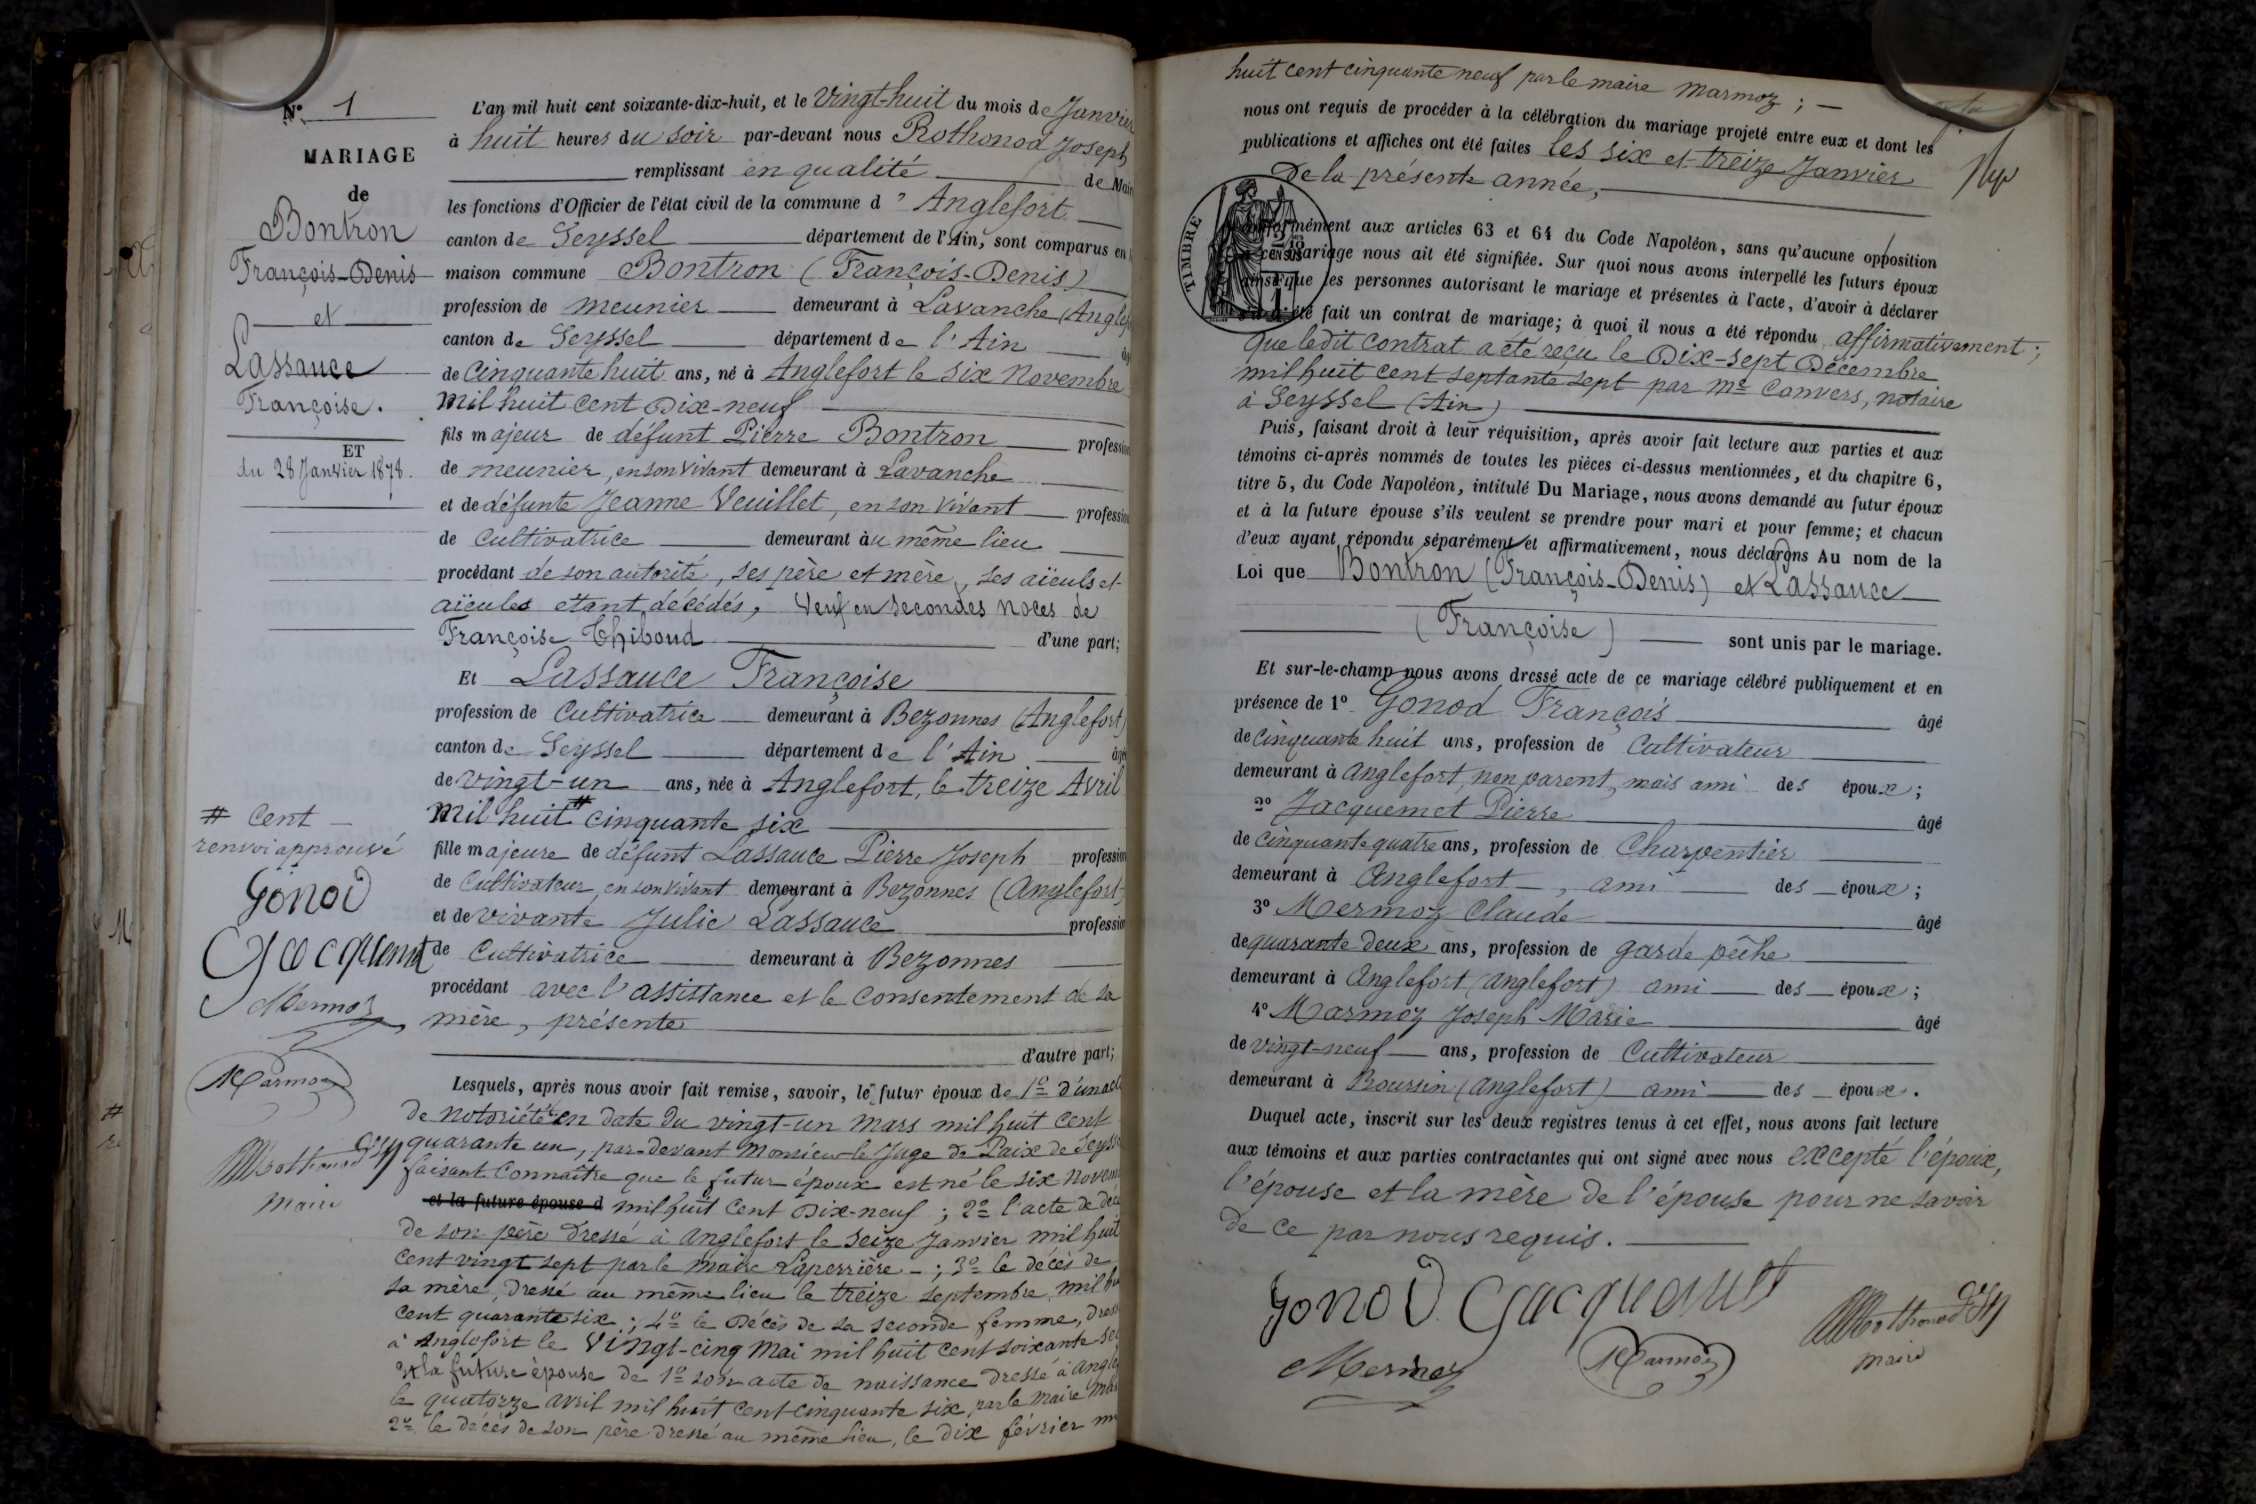 N° 1
MARIAGE
de
Bontron
François-Denis
et
Lassauce
Françoise.
ET
du 28 Janvier 1878.
# Cent
renvoi approuvé
Gonod
Jacquemet
Mermoz
Marmoz
Rothonod
Maire
L'an mil huit cent soixante-dix-huit, et le Vingt-huit du mois de Janvier
à huit heures du soir par-devant nous Rothonod Joseph
remplissant en qualité de Maire
les fonctions d'Officier de l'état civil de la commune d'Anglefort
canton de Seyssel département de l'Ain, sont comparus en
maison commune Bontron (François-Denis)
profession de meunier demeurant à Lavanche (Anglef
canton de Seyssel département de l'Ain âg
de cinquante huit ans, né à Anglefort le six Novembre
mil huit cent Dix-neuf
fils majeur de défunt Pierre Bontron profession
de meunier, en son vivant demeurant à Lavanche
et de défunte Jeanne Veuillet, en son vivant profession
de cultivatrice demeurant au même lieu
procédant de son autorité, ses père et mère, ses aïeuls et
aïeules etant décédés, Veuf en secondes noces de
Françoise Thiboud d'une part;
Et Lassauce Françoise
profession de Cultivatrice demeurant à Bezonnes (Anglefort)
canton de Seyssel département de l'Ain âgé
de vingt-un ans, née à Anglefort, le treize Avril
mil huit # cinquante six
fille majeure de défunt Lassauce Pierre Joseph profession
de Cultivateur, en son vivant demeurant à Bezonnes (Anglefort)
et de vivante Julie Lassauce profession
de Cultivatrice demeurant à Bezonnes
procédant avec l'assistance et le consentement de sa
mère, présente
d'autre part;
Lesquels, après nous avoir fait remise, savoir, le futur époux de 1° d'un acte
de notoriété en date du vingt-un mars mil huit cent
quarante un, par-devant Monsieur le Juge de Paix de Seyss
faisant connaître que le futur époux est né le six Novem
et la future épouse d mil huit cent Dix-neuf; 2° l'acte de déc
de son père dressé à Anglefort le seize Janvier mil huit
cent vingt sept par le maire Laperrière; 3° le décès de
sa mère, dressé au même lieu le treize septembre mil hu
cent quarante six; 4° le Décès de sa seconde femme, dress
à Anglefort le Vingt-cinq Mai mil huit cent soixante se
et la future épouse de 1° son acte de naissance dressé à Anglef
le quatorze avril mil huit cent cinquante six, par le maire Ma
2° le décès de son père dressé au même lieu, le dix février m
huit cent cinquante neuf par le maire Marmoz; —
nous ont requis de procéder à la célébration du mariage projeté entre eux et dont les
publications et affiches ont été faites les six et treize Janvier
De la présente année,
TIMBRE
conformément aux articles 63 et 64 du Code Napoléon, sans qu'aucune opposition
à ce mariage nous ait été signifiée. Sur quoi nous avons interpellé les futurs époux
ainsi que les personnes autorisant le mariage et présentes à l'acte, d'avoir à déclarer
s'il a été fait un contrat de mariage; à quoi il nous a été répondu affirmativement;
Que ledit contrat a été reçu le Dix-sept Décembre
mil huit cent septante sept par Me Convers, notaire
à Seyssel (Ain)
Puis, faisant droit à leur réquisition, après avoir fait lecture aux parties et aux
témoins ci-après nommés de toutes les pièces ci-dessus mentionnées, et du chapitre 6,
titre 5, du Code Napoléon, intitulé Du Mariage, nous avons demandé au futur époux
et à la future épouse s'ils veulent se prendre pour mari et pour femme; et chacun
d'eux ayant répondu séparément et affirmativement, nous déclarons Au nom de la
Loi que Bontron (François-Denis) et Lassauce
(Françoise) sont unis par le mariage.
Et sur-le-champ nous avons dressé acte de ce mariage célébré publiquement et en
présence de 1° Gonod François âgé
de cinquante huit ans, profession de Cultivateur
demeurant à Anglefort, non parent, mais ami des époux;
2° Jacquemet Pierre âgé
de cinquante quatre ans, profession de Charpentier
demeurant à Anglefort, ami des époux;
3° Mermoz Claude âgé
de quarante deux ans, profession de garde pêche
demeurant à Anglefort (Anglefort) ami des époux;
4° Marmoz Joseph Marie âgé
de vingt-neuf ans, profession de Cultivateur
demeurant à Boursin (Anglefort) ami des époux.
Duquel acte, inscrit sur les deux registres tenus à cet effet, nous avons fait lecture
aux témoins et aux parties contractantes qui ont signé avec nous excepté l'époux,
l'épouse et la mère de l'épouse pour ne savoir
de ce par nous requis.
Gonod Jacquemet
Rothonod
Mermoz Marmoz
maire